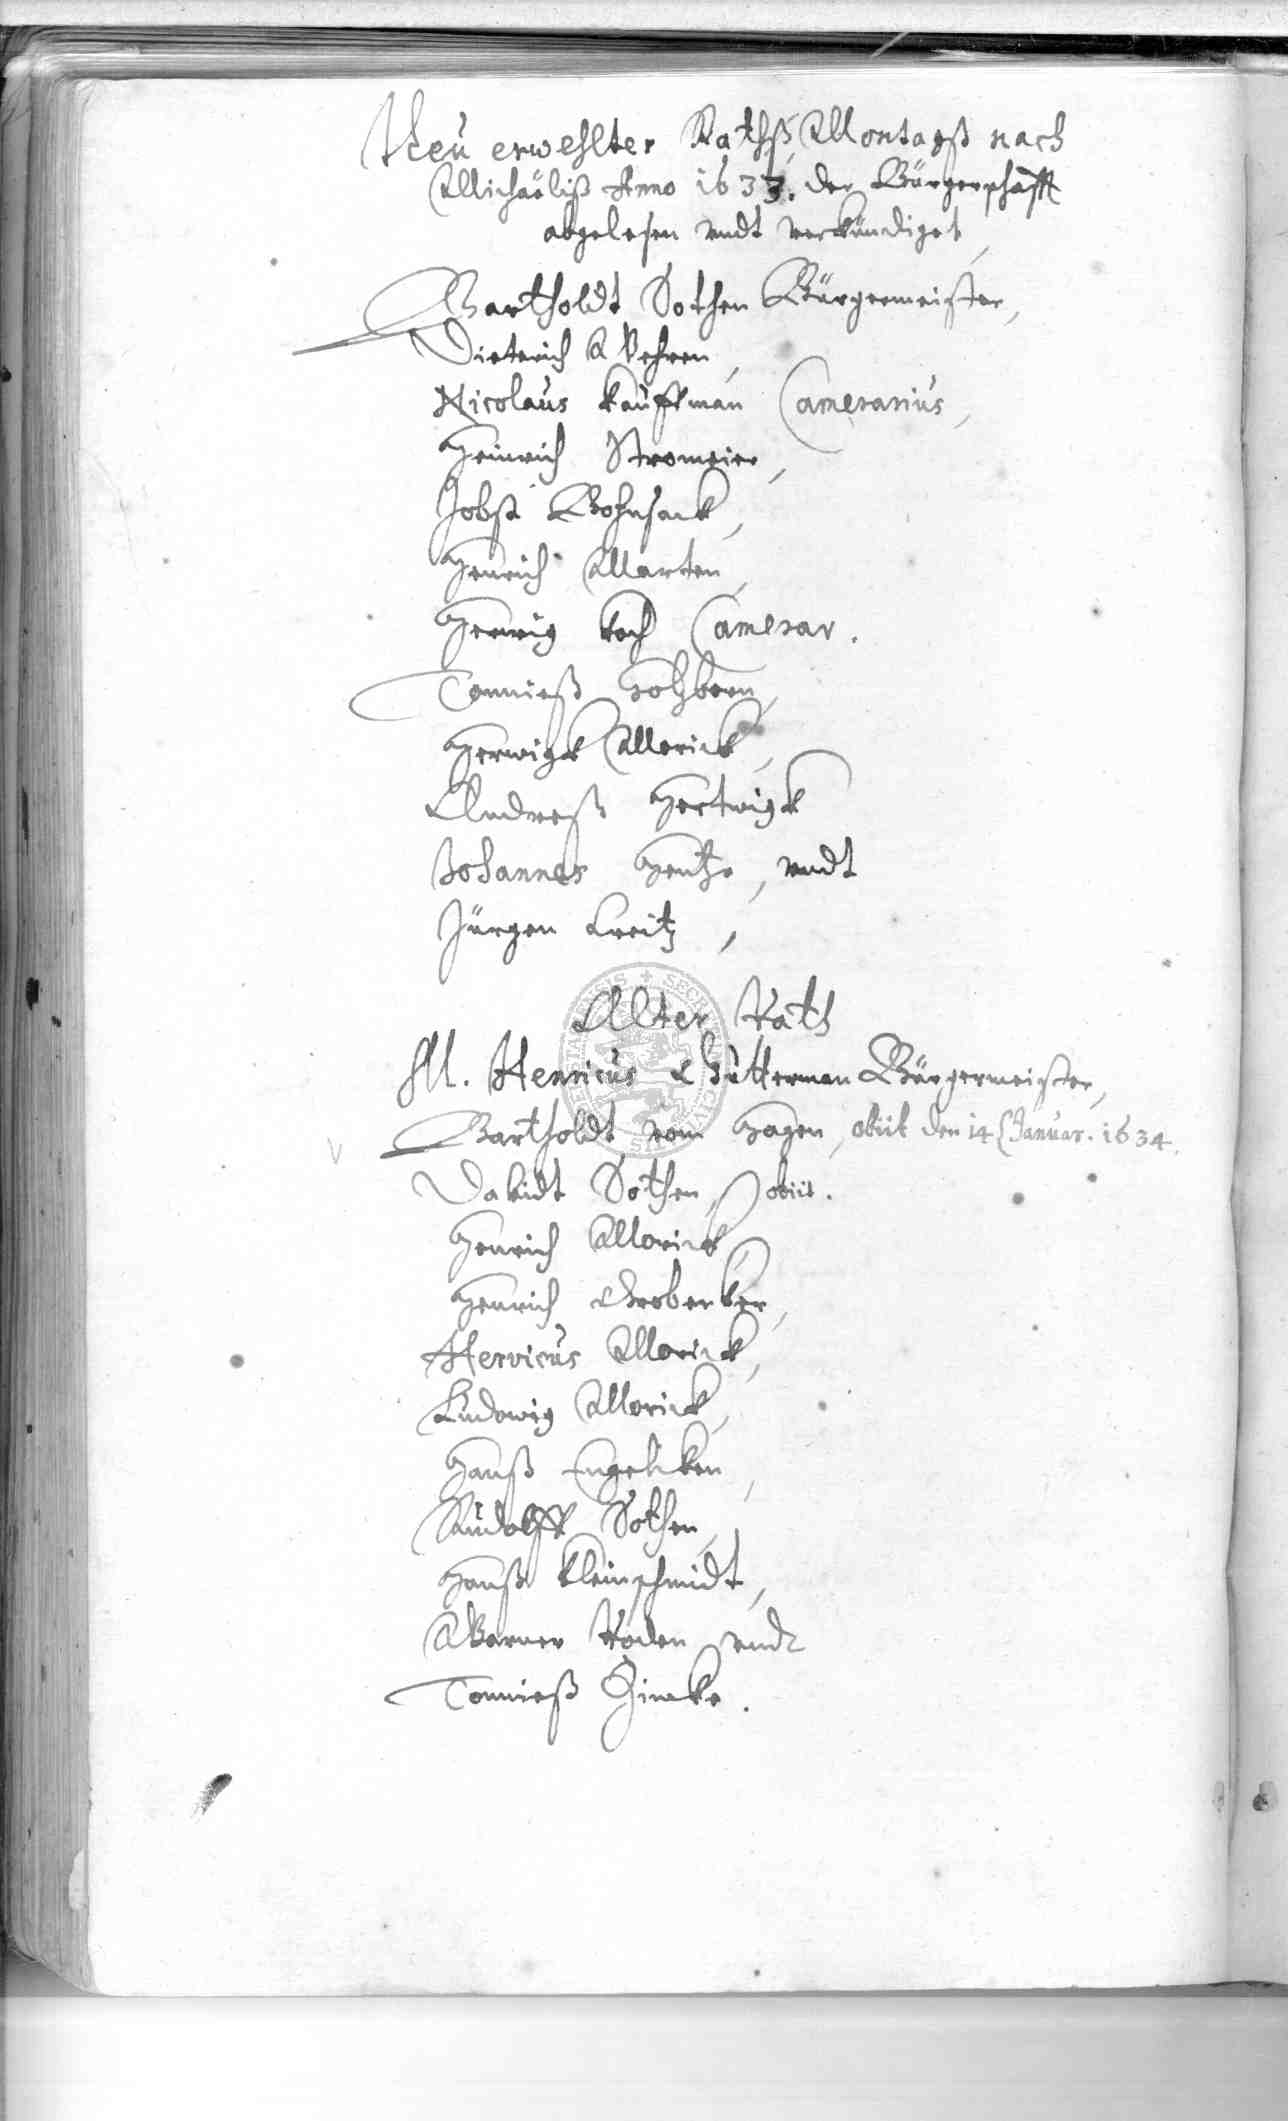 Neu erwehlter Rathß, Montagß nach
Michaëliß Anno 1633. der Bürgerschafft
abgelesen undt verkündiget,
Bartholdt Sothen Bürgermeister,
Dieterich Wehren,
Nicolaus Kauffman Camerarius,
Heinrich Stromeier,
Jobst Bohnsack,
Henrich Marten,
Herwig Koch Camerar.
Tonnieß Holtzborn,
Herwigk Morick,
Andreß Hertwigk
Johannes Hentze, undt
Jürgen Kreitz,
Alter Rath
M. Henricus Gütterman Bürgermeister,
Bartholdt vom Hagen, obiit den 14 Januar. 1634.
Davidt Sothen, obiit.
Henrich Morick,
Henrich Grobecker,
Hervicus Morick,
Ludowig Morick,
Hanß Engelken,
Rudolff Sothen,
Hanß Kleinschmidt,
Warner Roden undt
Tonnieß Gimke.